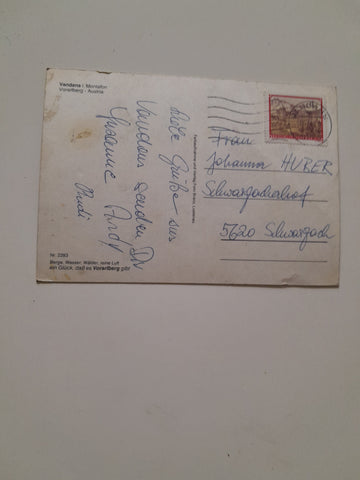 Vandans i. Montafon
Vorarlberg - Austria
Liebe Grüße aus
Vandans senden Dir
Susanne
Rudi
Nr. 2263
Berge, Wasser, Wälder, reine Luft
ein Glück, daß es Vorarlberg gibt
Frau
Johanna HUBER
Schwarzacherhof
5620 Schwarzach